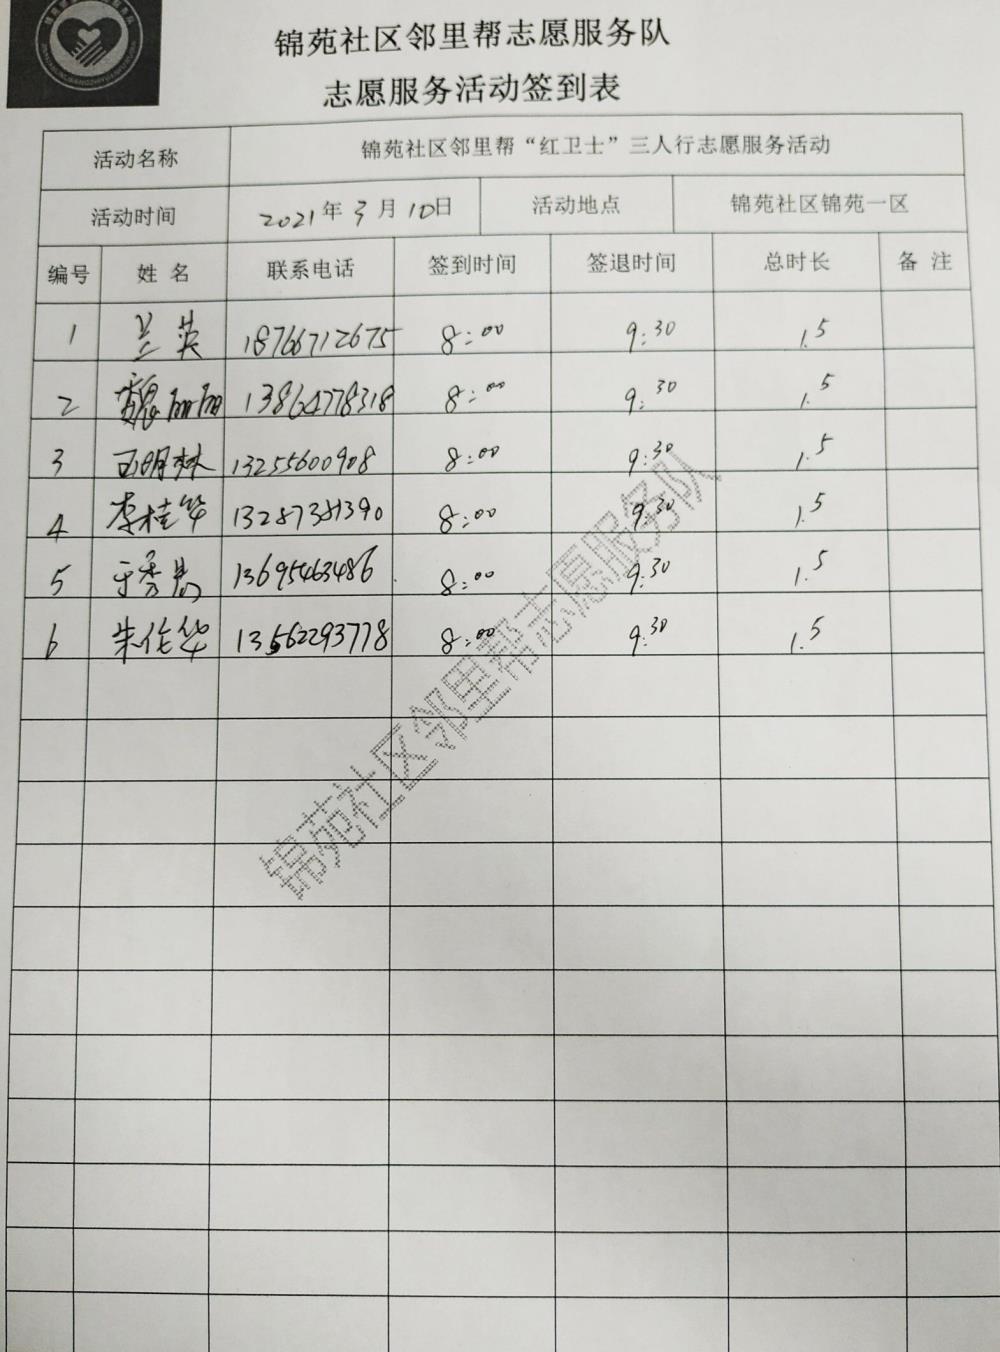 锦苑社区邻里帮志愿服务队
志愿服务活动签到表
活动名称 锦苑社区邻里帮“红卫士”三人行志愿服务活动
活动时间 2021年3月10日 活动地点 锦苑社区锦苑一区
编号 姓名 联系电话 签到时间 签退时间 总时长 备注
1 兰英 18766712675 8:00 9:30 1.5
2 魏丽丽 13864778318 8:00 9:30 1.5
3 王明林 13255600908 8:00 9:30 1.5
4 李桂华 13287381390 8:00 9:30 1.5
5 于秀 13695463486 8:00 9:30 1.5
6 朱伦华 13562293778 8:00 9:30 1.5
锦苑社区邻里帮志愿服务队